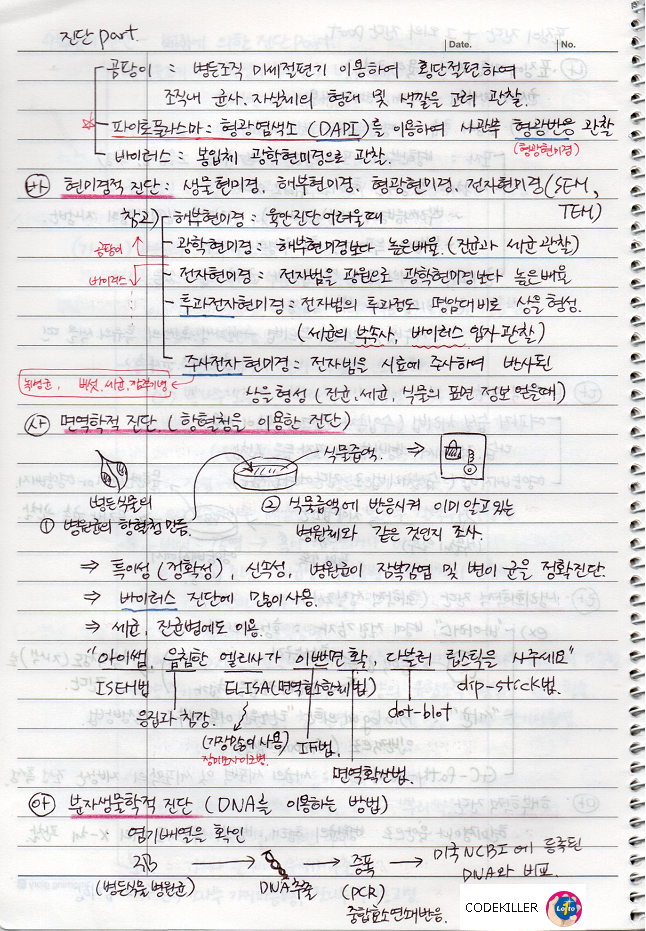 진단 part.
Date. No.
곰팡이 : 병든조직 미세절편기 이용하여 횡단절편하여
조직내 균사. 자실체의 형태 및 색깔을 고려 관찰.
☆ 파이토플라스마 : 형광염색소 (DAPI)를 이용하여 사관부 형광반응 관찰
(형광현미경)
바이러스 : 봉입체 광학현미경으로 관찰.
㉳ 현미경적 진단 : 생물현미경, 해부현미경, 형광현미경, 전자현미경(SEM,
TEM)
참고) 해부현미경 : 육안진단 어려울때
곰팡이 광학현미경 : 해부현미경보다 높은배율. (진균과 세균 관찰)
바이러스 전자현미경 : 전자빔을 광원으로 광학현미경보다 높은배율
투과전자현미경 : 전자빔의 투과정도 명암대비로 상을 형성.
(세균의 부속사, 바이러스 입자 관찰)
주사전자현미경 : 전자빔을 시료에 주사하여 반사된
버섯, 세균,
상을 형성 (진균, 세균, 식물의 표면 정보 얻을때)
㉴ 면역학적 진단. (항혈청을 이용한 진단)
식물즙액. ⇒
병든식물의
① 병원균의 항혈청 만듦.
② 식물즙액에 반응시켜 이미 알고 있는
병원체와 같은 것인지 조사.
⇒ 특이성 (정확성), 신속성, 병원균이 잠복감염 및 병이 균을 정확진단.
⇒ 바이러스 진단에 많이 사용.
⇒ 세균, 진균병에도 이용.
"아이쌤, 음침한 엘리사가 이빤면 확, 다블러 립스틱을 사주세요"
ISEM법 ELISA(면역효소항체법) dip-stick법.
응집과 침강. dot-blot
(가장많이 사용) IF법.
면역확산법.
㉵ 분자생물학적 진단 (DNA를 이용하는 방법)
염기배열을 확인
즙 → DNA추출 → 증폭 → 미국 NCBI에 등록된
DNA와 비교.
(병든식물, 병원균) (PCR)
중합효소연쇄반응.
CODEKILLER
Lotto